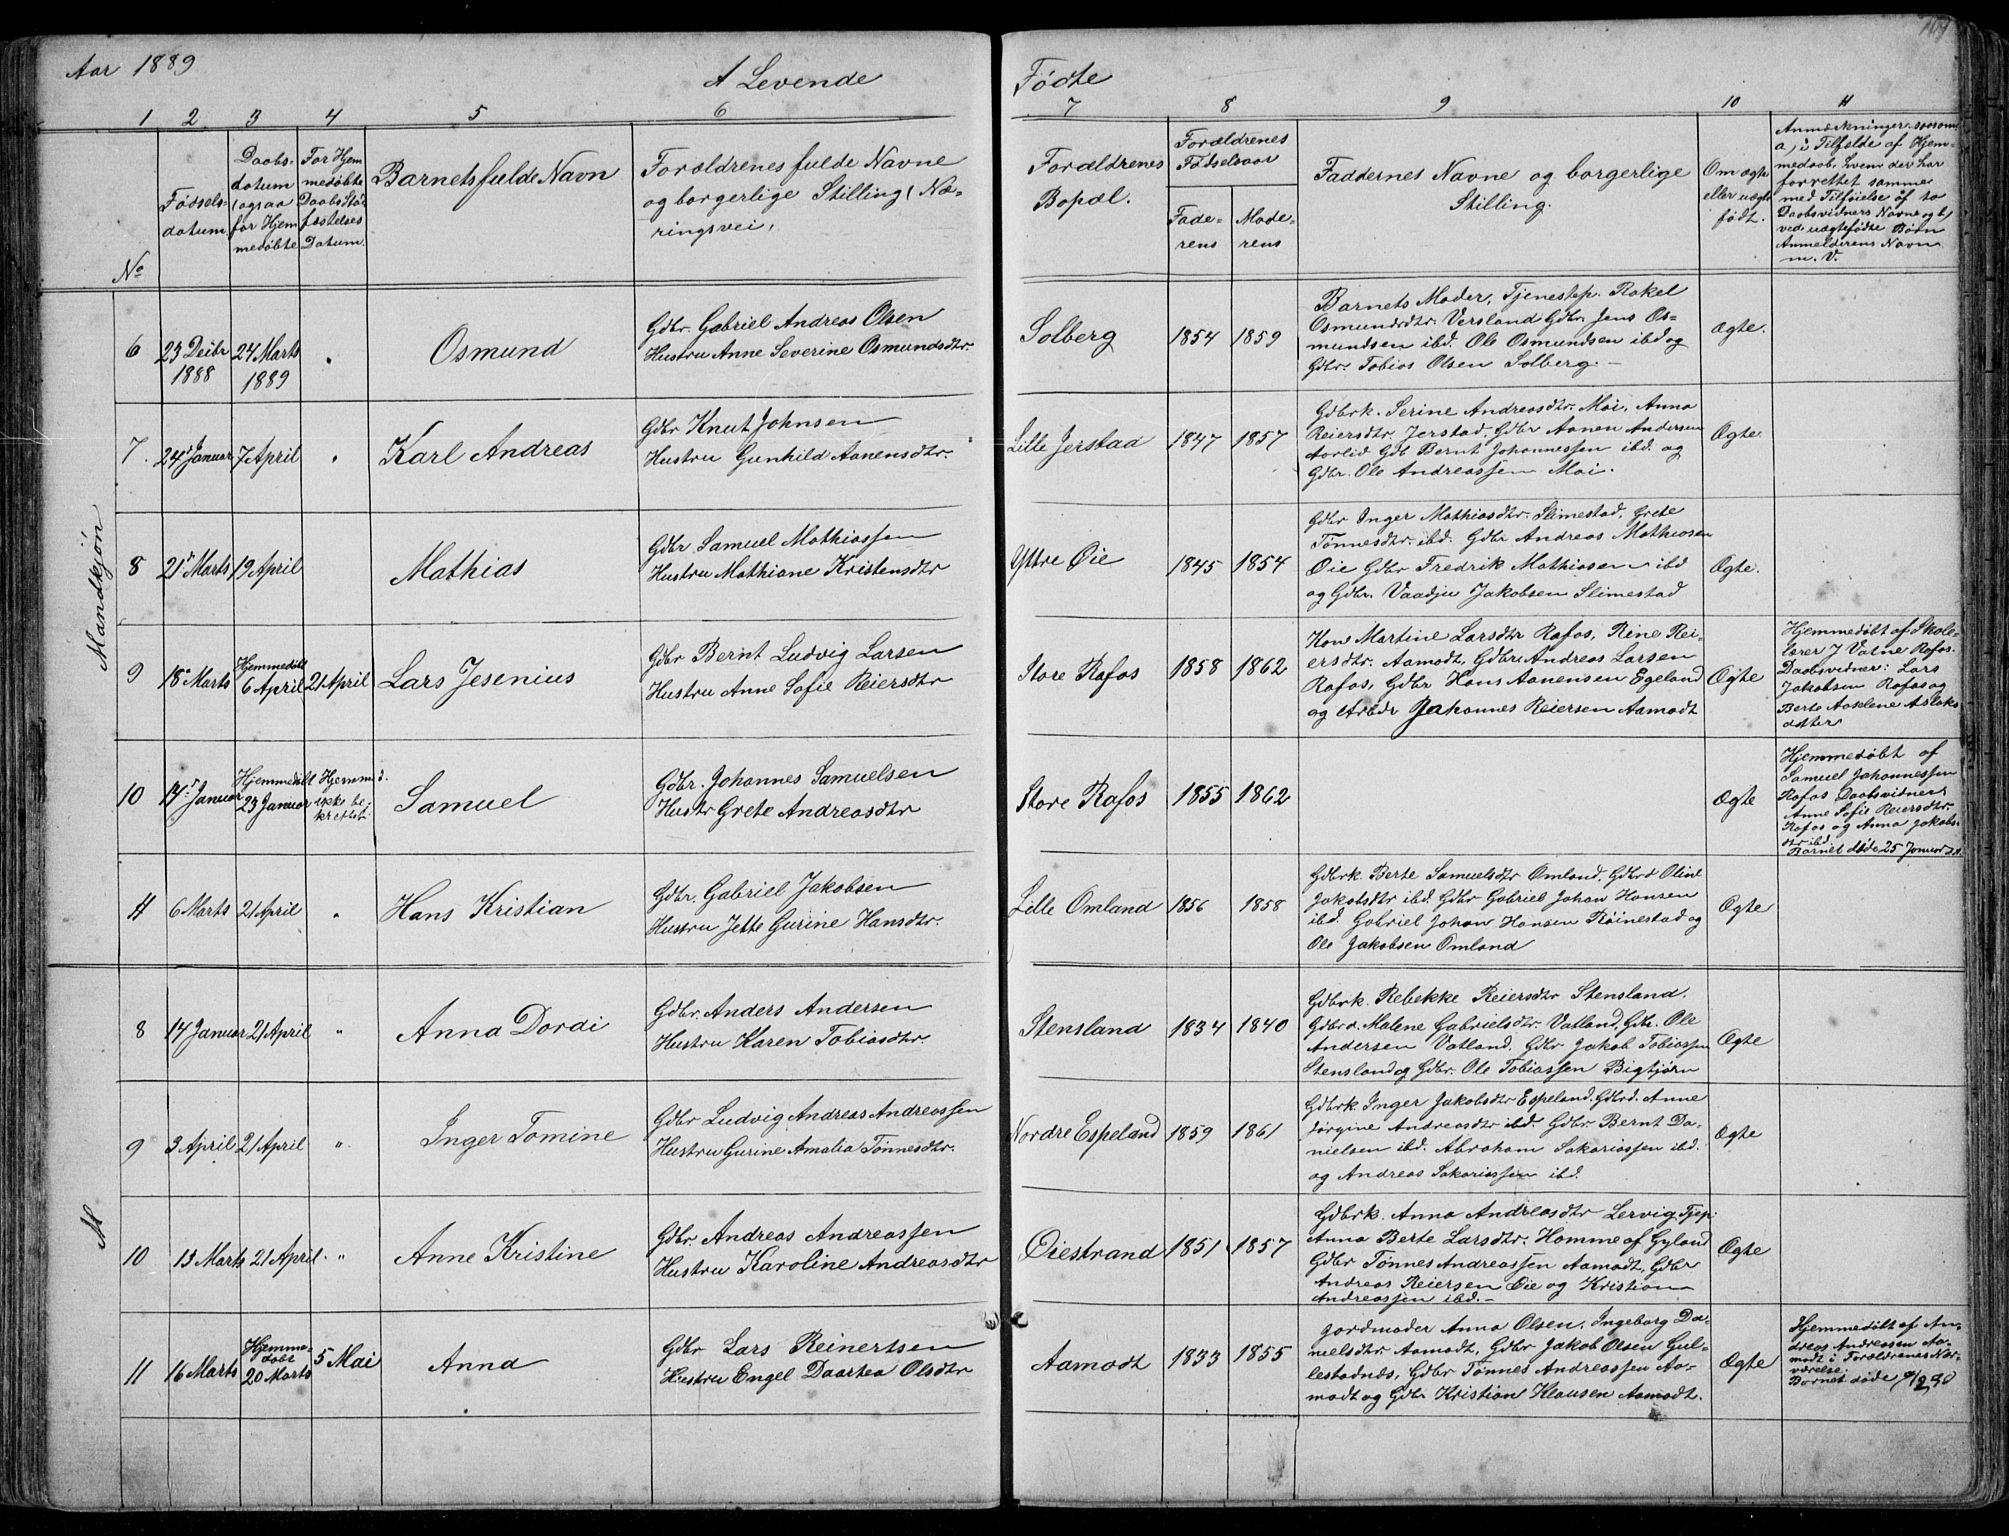 Aar 1889
A Levende
Fødte
1 2 3 4 5 6
7 8 9 10 11
No
Fødsels-
datum
Daabs-
datum
(ogsaa
for Hjem
medøbte
For Hjem
medøbte
Daabsstad
fæstelses
Datum.
Barnets fulde Navn
Forældrenes fulde Navne
og borgerlige Stilling (Næ-
ringsvei,
Forældrenes
Bopæl.
Forældrenes
Fødselsaar
Fade-
rens
Mode-
rens
Faddernes Navne og borgerlige
Stilling.
Om ægte
eller uægte
født.
Anmærkninger, saasom
a, i Tilfælde af Hjem-
medaab, hvem der har
forrettet samme
med Tilføielse af to
Daabsvidners Navne og b,
ved uægtefødte Børn
Anmelderens Navn
m. V.
Mandkjøn
6
23 Decbr
1888
24 Marts
1889
"
Osmund
Gdbr. Gabriel Andreas Olsen
Hustru Anne Severine Osmundsdtr.
Solberg
1854
1859
Barnets Moder, Tjenestep. Rakel
Osmundsdtr. Versland Gdbr. Jens Os-
mundsen ibd. Ole Osmundsen ibd og
Gdbr. Tobias Olsen Solberg.-
Ægte.
7.
24 Januar
7 April
"
Karl Andreas
Gdbr Knut Johnsen
Hustru Gunhild Aanensdtr.
Lille Jerstad
1847
1857
Gdbrk. Serine Andreasdtr. Moi, Anna
Reiersdtr. Jerstad, Gdbr Aanen Andersen
Aarlid Gdb Bernt Johannessen ibd. og
Gdbr. Ole Andreassen Moi.
Ægte.
8
21 Marts
19 April
Mathias
Gdbr Samuel Mathiassen
Hustru Mathiane Kristensdtr
Yttre Øie
1845
1854
Gdbr Inger Mathiasdtr. Slimestad, Grete
Tønnesdtr. ibd. Gdbr Andreas Mathiosen
Øie Gdbr Fredrik Mathiasen ibd
og Gdbr. Vaadju Jakobsen Slimestad
Ægte.
9
18 Marts
Hjemmedøbt
6 April
21 April
Lars Jesenius
Gdbr Bernt Ludvig Larsen
Hustru Anne Sofie Reiersdtr
Store Rafos
1858
1862
Kone Martine Larsdtr Rafos, Rine Rei-
ersdtr. Aamodt, Gdbr. Andreas Larsen
Rafos, Gdbr Hans Aanensen Egeland
og Arbdr Johannes Reiersen Aamodt
Ægte
Hjemmedøbt af Skole-
lærer J Vatne Rafos.
Daabsvidner: Lars
Jakobsen Rafos og
Berte Aaslene Aslaks
datter
10
14 Januar
Hjemmedøbt
23 Januar
Hjemmed.
ikke be-
kræftet
Samuel
Gdbr. Johannes Samuelsen
Hustr Grete Andreasdtr
Store Rafos
1855
1862
Ægte
Hjemmedøbt af
Samuel Johannessen
Rafos Daabsvidner
Anne Sofie Reiersdtr.
Rafos og Anna Jakobs-
dtr ibd
Barnet døde 25 Januar
11
6 Marts
21 April
"
Hans Kristian
Gdbr. Gabriel Jakobsen
Hustru Jette Gurine Hansdtr.
Lille Omland
1856
1858
Gdbrk. Berte Samuelsdtr Omland, Gdbrd Oline
Jakobsdtr ibd. Gdbr Gabriel Johan Hansen
ibd. Gabriel Johan Hansen Røinestad og
Ole Jakobsen Omland
Ægte
8
14 Januar
21 April
"
Anna Dordi
Gdbr. Anders Andersen
Hustru Karen Tobiasdtr
Stensland
1834
1840
Gdbrk. Rebekke Reiersdtr Stensland.
Gdbrd. Malene Gabrielsdtr. Vatland, Gdbr. Ole
Andersen Vatland. Gdbr Jakob Tobiassen
Stensland og Gdbr. Ole Tobiassen Bigtjørn
Ægte
9
3 April
21 April
"
Inger Tomine
Gdbr Ludvig Andreas Andreassen
Hustru Gurine Amalia Tønnesdtr.
Nordre Espeland
1859
1861
Gdbrk. Inger Jakobsdtr Espeland. Gdbrd. Anne
Jørgine Andreasdtr ibd. Gdbr Bernt Da-
nielsen ibd. Abraham Sakariassen ibd.
og Andreas Sakariassen ibd.
Ægte
K
10
13 Marts
21 April
"
Anne Kristine
Gdbr. Andreas Andreassen
Hustru Karoline Andreasdtr
Øiestrand
1851
1857
Gdbrk. Anna Andreasdtr Lervig, Tjep.
Anna Berte Larsdtr. Homme af Gyland
Gdbr Tønnes Andreassen Aamodt, Gdbr
Andreas Reiersen Øie og Kristian
Andreassen ibd.-
Ægte
11
16 Marts
Hjemme-
døbt
20 Marts
5 Mai
Anna
Gdbr Lars Reinertsen
Hustru Engel Daartea Olsdtr
Aamodt
1833
1855
Jordmoder Anna Olsen, Ingeborg Da-
nielsdtr Aamodt, Gdbr Jakob Olsen Gul-
lestadnes, Gdbr Tønnes Andreassen Aa-
modt og Gdbr Kristian Klausen Aamodt.
Ægte
Hjemmedøbt af An-
dreas Andreassen Aa-
modt i Forældrenes Nær-
værelse.
Barnet døde